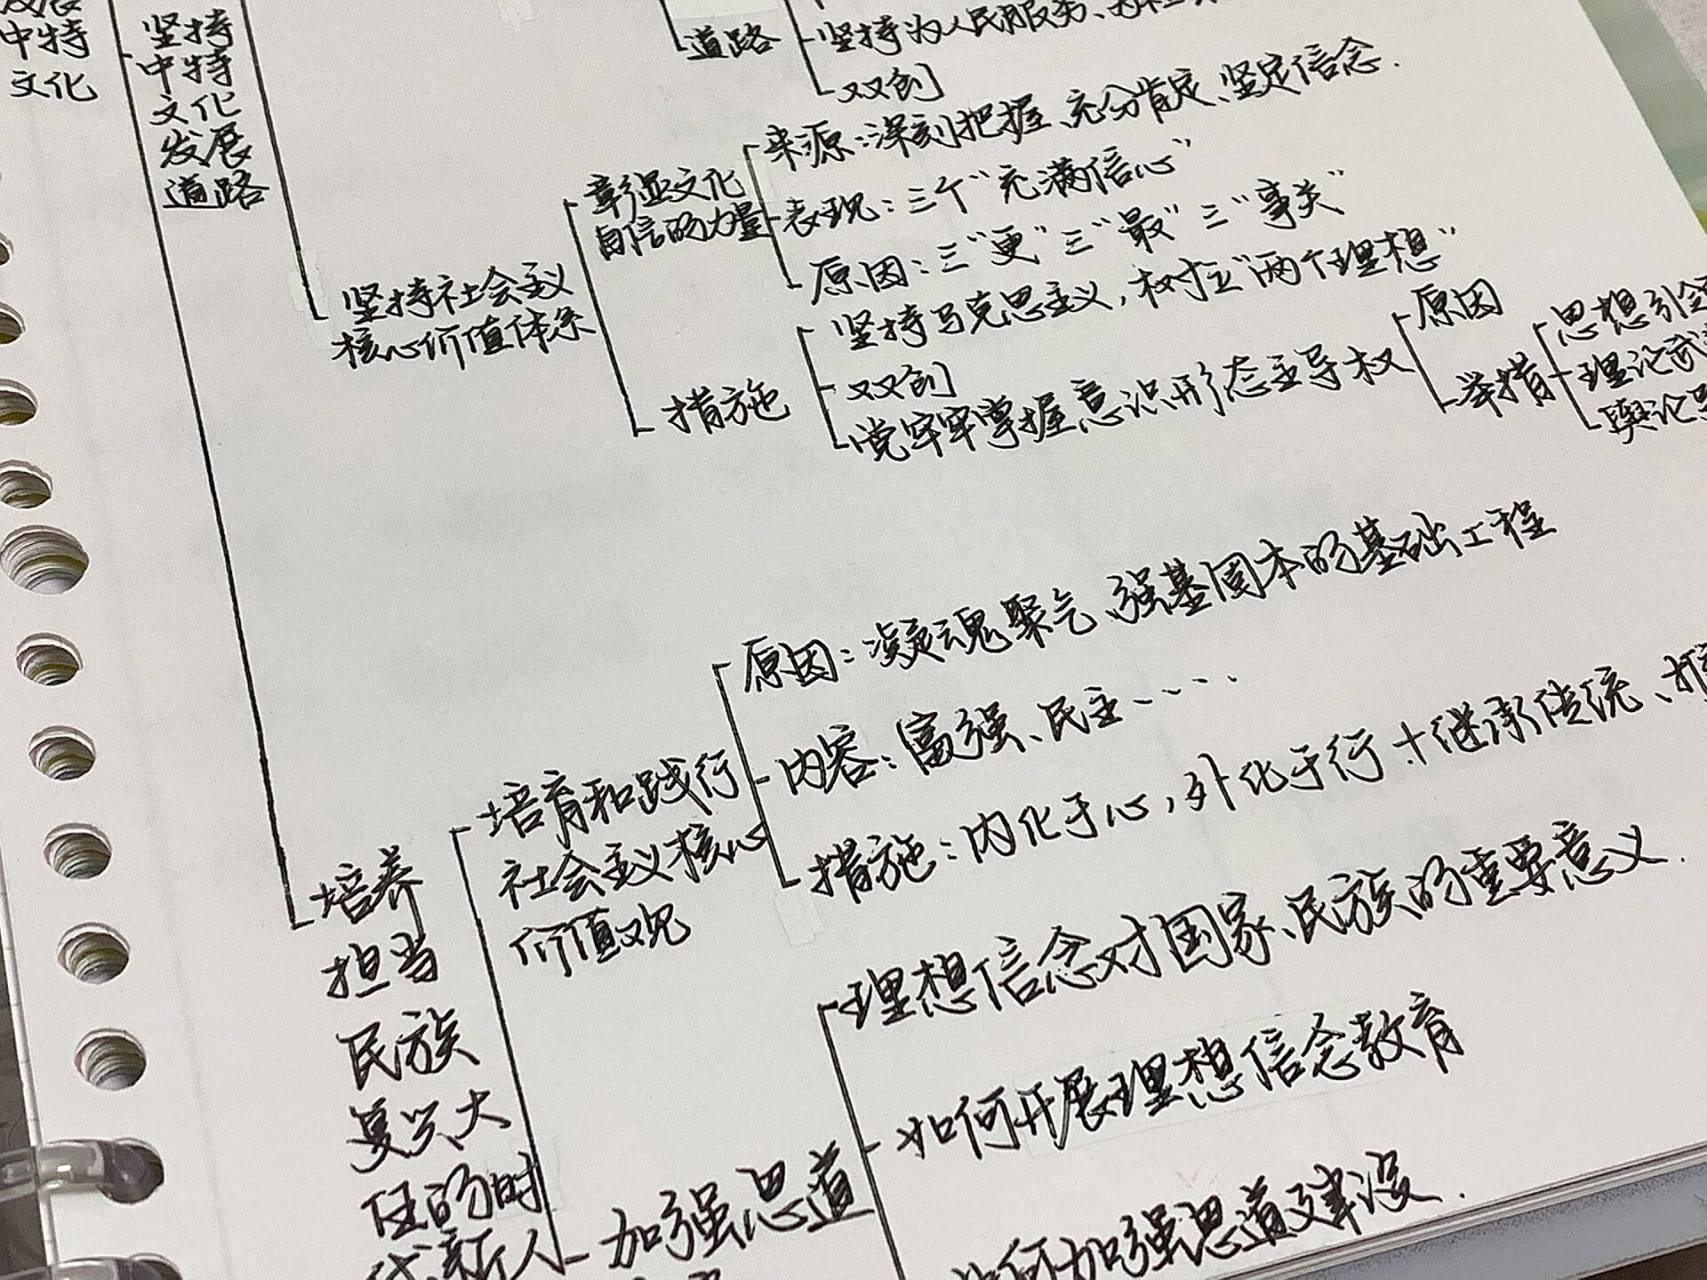 中特
文化
坚持
中特
文化
发展
道路
道路
坚持为人民服务、为社
双创
坚持社会主义
核心价值体系
彰显文化
自信的力量
来源：深刻把握、充分肯定、坚定信念.
表现：三个“充满信心”
原因：三“更”三“最”三“事关”
措施
坚持马克思主义，树立“两个理想”
双创
党牢牢掌握意识形态主导权
原因
举措
思想引领
理论武
舆论
培养
担当
民族
复兴大
任的时
代新人
培育和践行
社会主义核心
价值观
原因：凝魂聚气、强基固本的基础工程
内容：富强、民主、....
措施：内化于心，外化于行＋继承传统、
加强思道
理想信念对国家、民族的重要意义.
如何开展理想信念教育
如何加强思道建设.